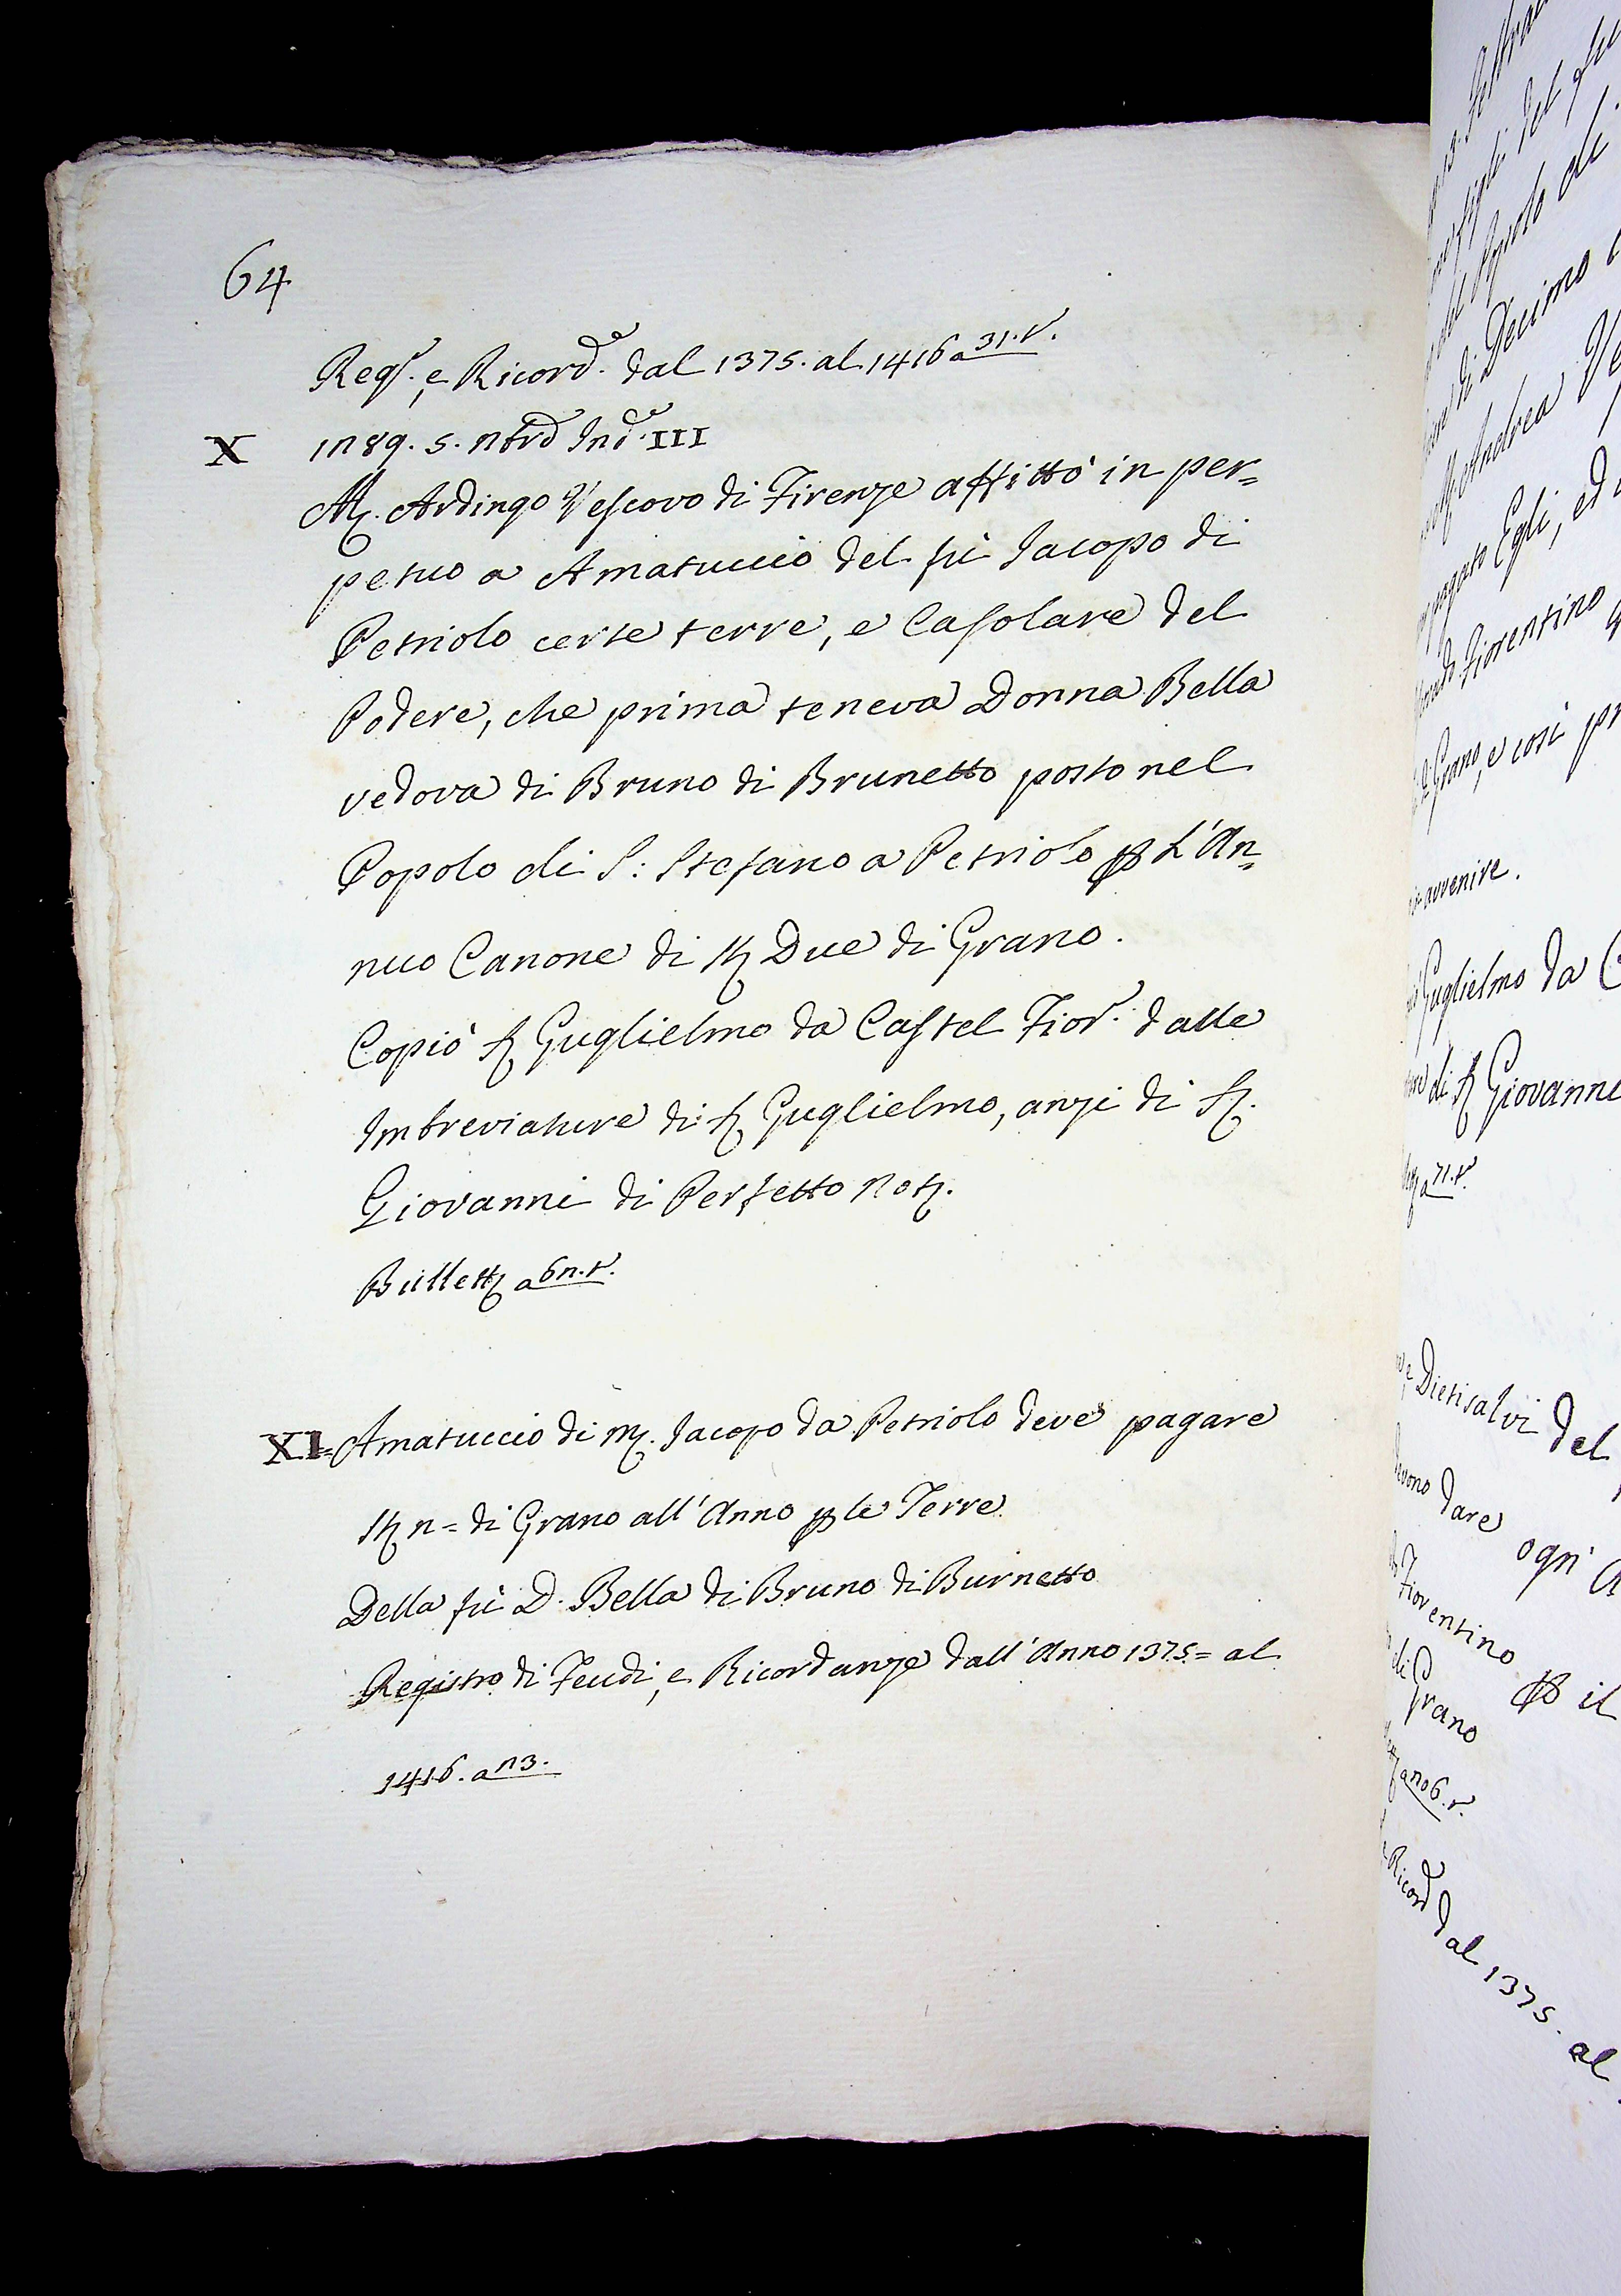 64
Regº. e Ricordᵉ. dal 1375. al 1416 a 31. v.
X 1289. 5. Nbrẽ Indᵉ. III
M. Ardingo Vescovo di Firenze affittò in per=
petuo a Amatuccio del fù Jacopo di
Petriolo certe terre, e Casolare del
Podere, che prima teneva Donna Bella
vedova di Bruno di Brunetto posto nel
Popolo di S: Stefano a Petriolo p L'An=
nuo Canone di St Due di Grano.
Copiò S Guglielmo da Castel Fiorº. dalle
Imbreviature di S Guglielmo, anzi di S.
Giovanni di Perfetto Not.
Bullett a 62. v.
XI= Amatuccio di M. Jacopo da Petriolo deve pagare
St 2= di Grano all'Anno p le Terre
Della fù D. Bella di Bruno di Burnetto
Registro di Feudi, e Ricordanze dall'Anno 1375= al
1416. a 23.
Decimo
Andrea
Egli, ed
Fiorentino
Grano, e così
avvenire.
Guglielmo da
di S Giovanni
a 71. v.
e Dietisalvi del
devono dare ogn'
Fiorentino p il
di Grano
a 206. v.
e Ricordᵉ dal 1375. al